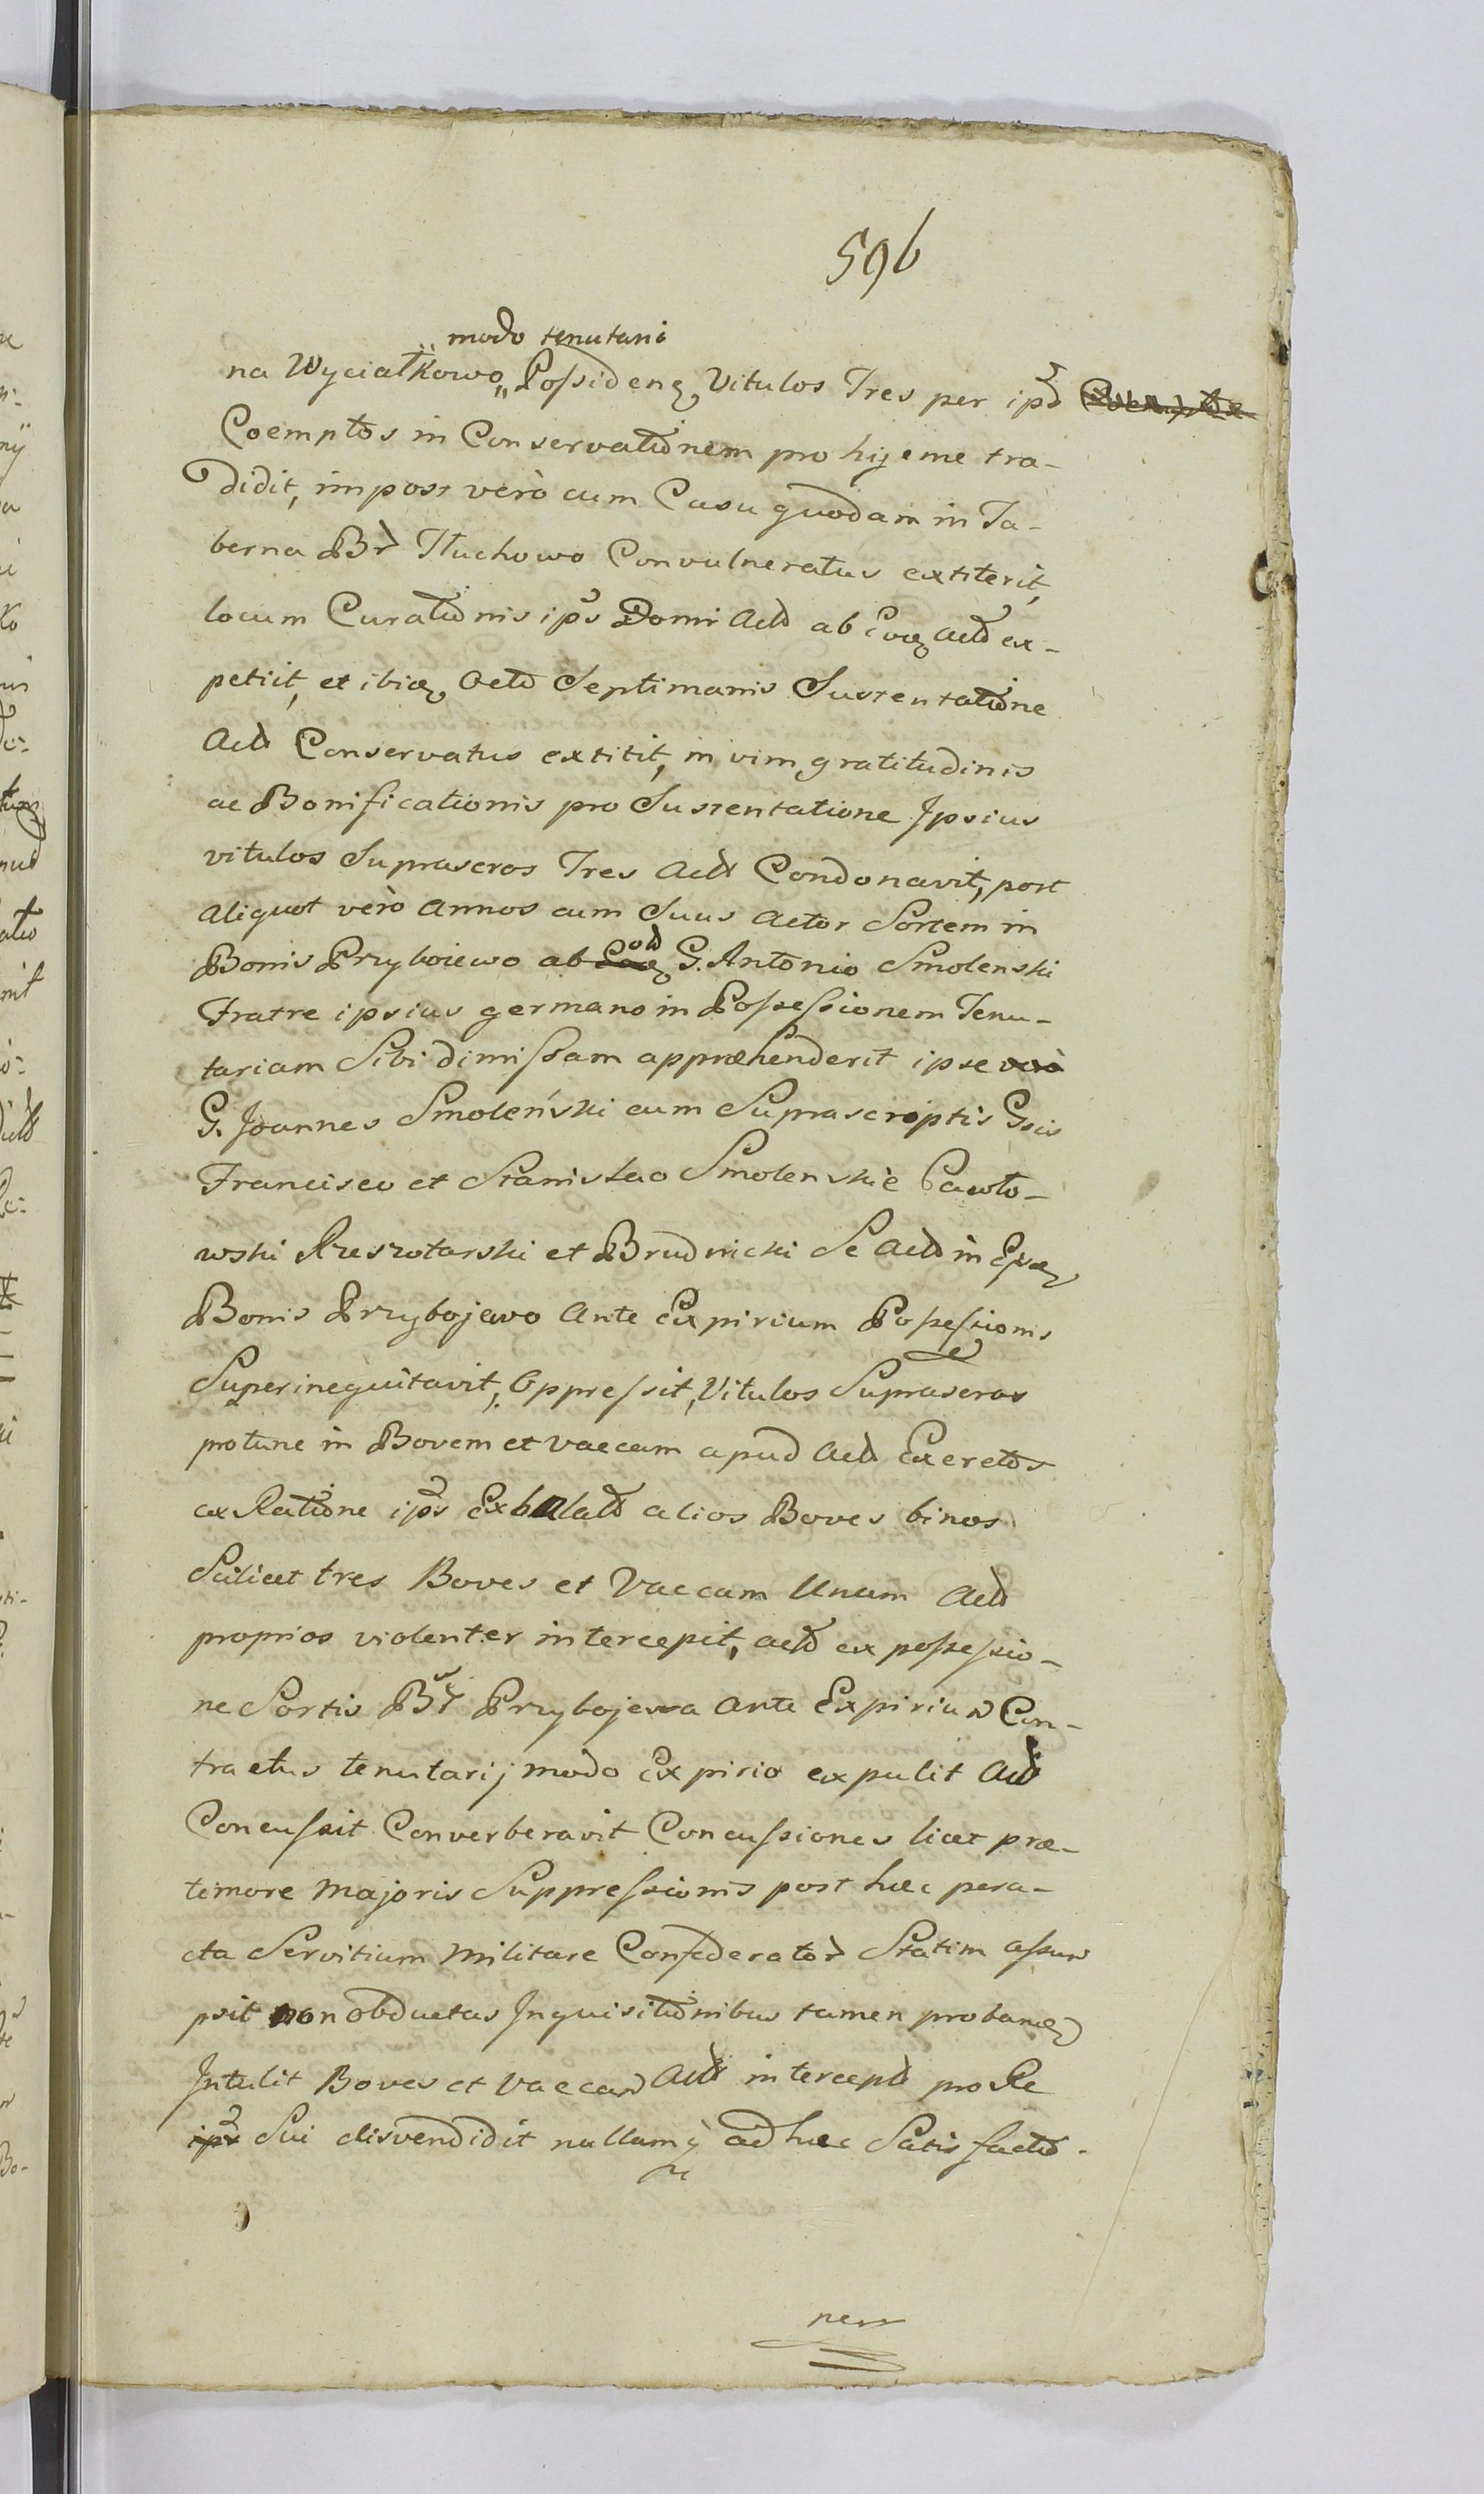 596
modo tenutarii
na Wyciałkowo „ Possidens, Vitulos Tres per ips
Coemptos in Conservationem pro hijeme tra-
didit, impost verò cum Casu quodam in Ta-
berna Br Tłuchowo Convulneratus extiterit,
locum Curationis ips Domi Actt ab Eoq Actt ex-
petiit, et ibiq Octo Septimanis Sustentatione
Actt Conservatus extitit, in vim gratitudinis
ac Bonificationis pro Sustentatione Ipsius
vitulos Suprascros Tres Actt Condonavit, post
Aliquot verò Annos cum Suus Actor Sortem in
Bonis Przyboiewo ab G. Antonio Smolenski
Fratre ipsius germano in Possessionem Tenu-
tariam Sibi dimissam appræhenderit ipse verò
G. Joannes Smoleński cum Suprascriptis Gsis
Francisco et Stanislao Smolenskie Pawło-
wski Rzeszotarski et Brudnicki Se Actt in Eosq
Bonis Przybojewo Ante Expirium Possessionis
Superinequitavit, Oppressit, Vitulos Suprascros
pro tunc in Bovem et vaccam apud Actt Excretos
ex Ratione ips Exbalatt alios Boves binos
Scilicet tres Boves et Vaccam Unam Actt
proprios violenter intercepit, Actt ex possessio-
ne Sortis Br Przybojewa Ante Expirium Con-
tractus tenutarij modo Expirio expulit Actt
Concussit Converberavit Concussiones licet præ-
timore Majoris Suppressionis post hæc pera-
cta Servitium Militare Confæderator Statim assum
psit non obductas Inquisitionibus tamen probandas
Intulit Boves et Vaccam Actt intercept pro Re
Sui disvendidit nullamq adhuc Satisfactio-
nem